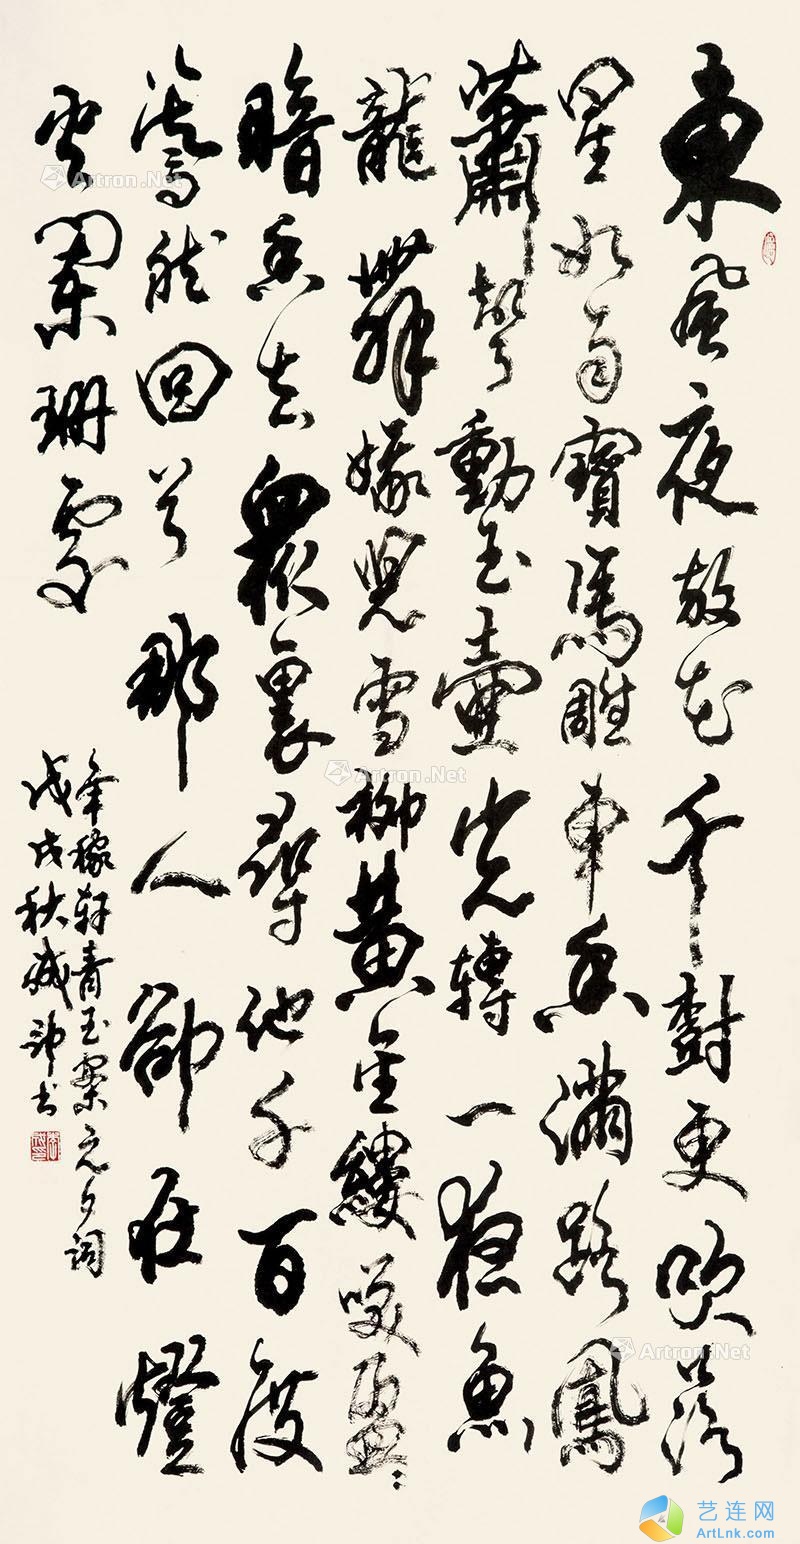 東風夜放花千樹更吹落
星如雨寶馬雕車香滿路鳳
蕭聲動玉壺光轉一夜魚
龍舞娥兒雪柳黃金縷笑盈〻
暗香去眾裏尋他千百度
驀然回首那人卻在燈
火闌珊處
辛稼軒青玉案元夕詞
戊戌秋書
Artron.Net
Artron.Net
Artron.Net
Artron.Net
Artron.Net
艺连网
ArtLnk.com